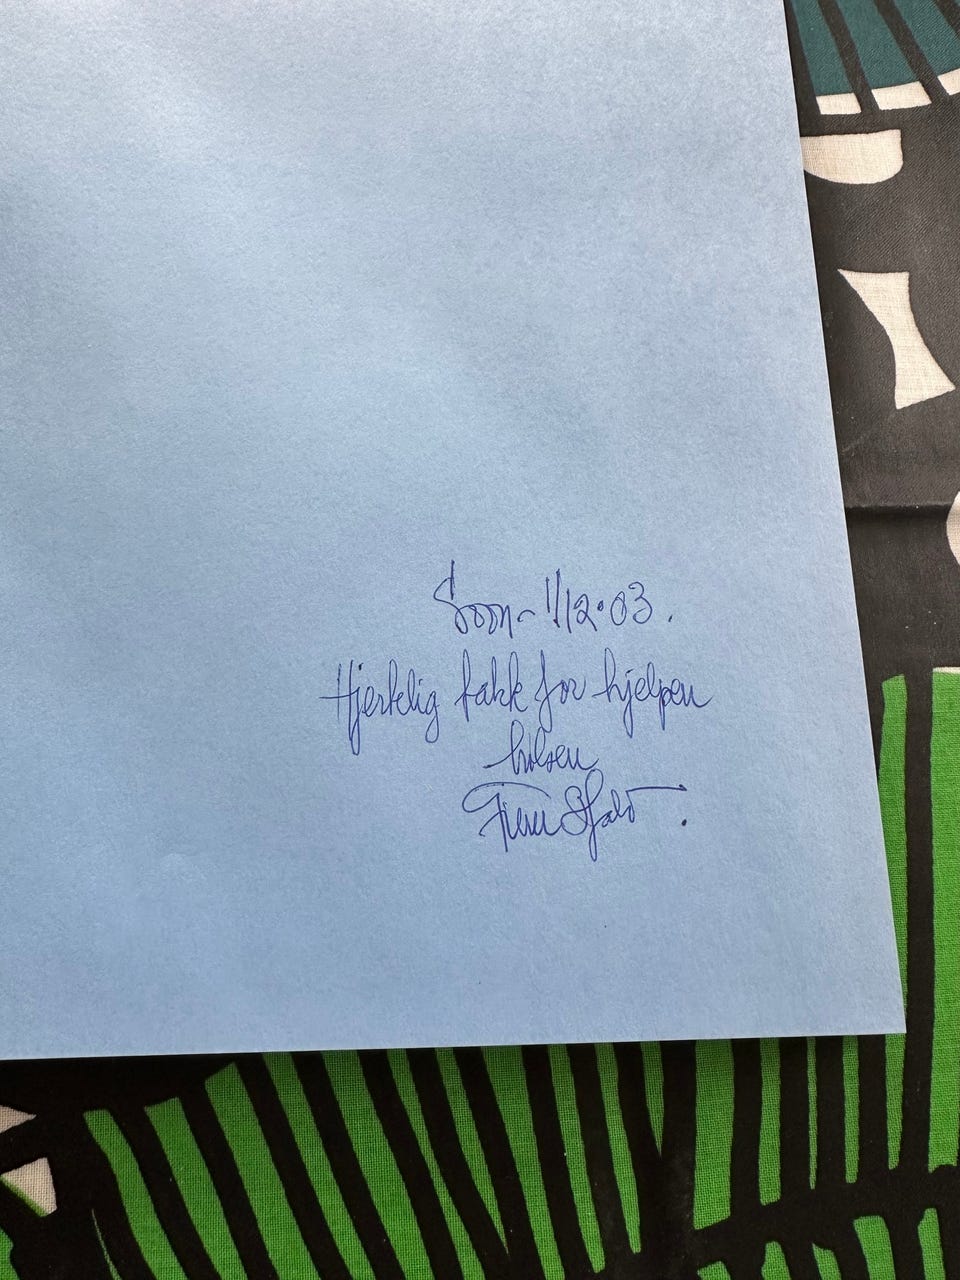 Soon - 1/12·03.
Hjertelig takk for hjelpen
hilsen
Finn